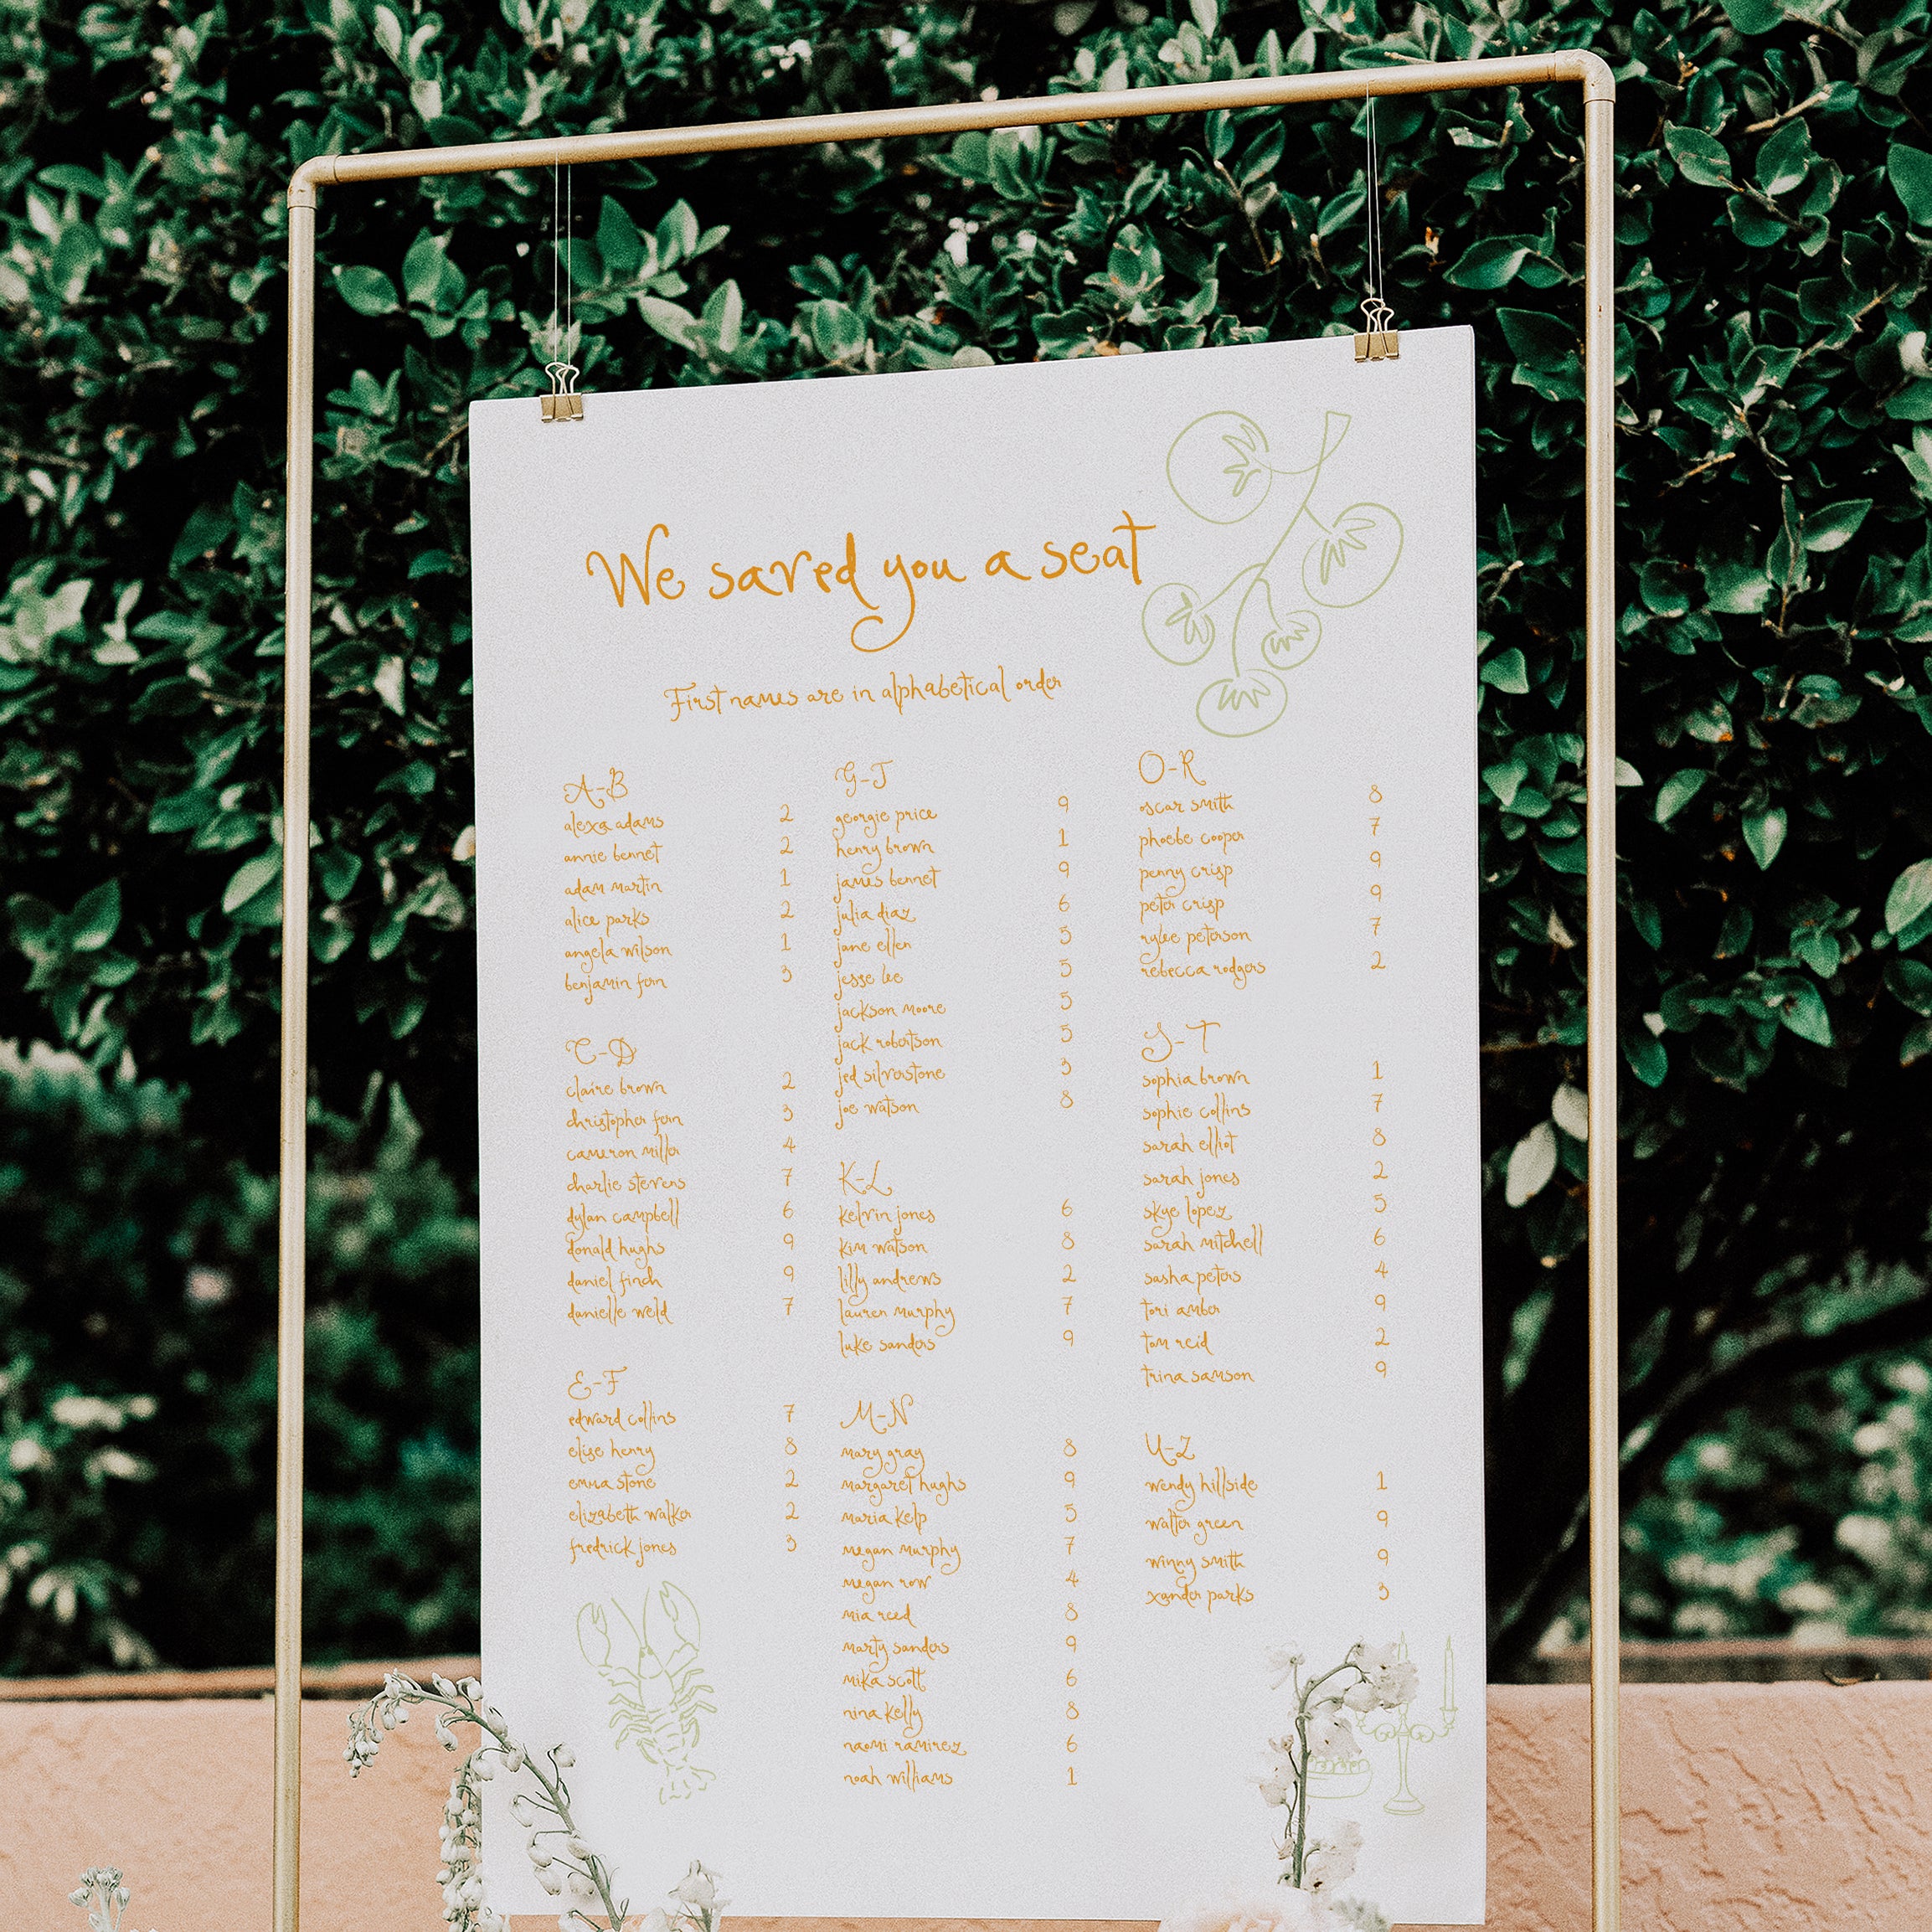 We saved you a seat
First names are in alphabetical order
A-B
alexa adams 2
annie bennet 2
adam martin 1
alice parks 2
angela wilson 1
benjamin fern 3
C-D
claire brown 2
christopher fern 3
cameron miller 4
charlie stevens 7
dylan campbell 6
donald hughs 9
daniel finch 9
danielle weld 7
E-F
edward collins 7
elise henry 8
emma stone 2
elizabeth walker 2
fredrick jones 3
G-J
georgie price 9
henry brown 1
james bennet 9
julia diaz 6
jane ellen 5
jesse lee 5
jackson moore 5
jack robertson 5
jed silverstone 3
joe watson 8
K-L
kelvin jones 6
kim watson 8
lilly andrews 2
lauren murphy 7
luke sanders 9
M-N
mary gray 8
margaret hughs 9
maria kelp 5
megan murphy 7
megan row 4
mia reed 8
marty sanders 9
mika scott 6
nina kelly 8
naomi ramirez 6
noah williams 1
O-R
oscar smith 8
phoebe cooper 7
penny crisp 9
peter crisp 9
rylee peterson 7
rebecca rodgers 2
S-T
sophia brown 1
sophie collins 7
sarah elliot 8
sarah jones 2
skye lopez 5
sarah mitchell 6
sasha peters 4
tori amber 9
tom reid 2
trina samson 9
U-Z
wendy hillside 1
walter green 9
winny smith 9
xander parks 3